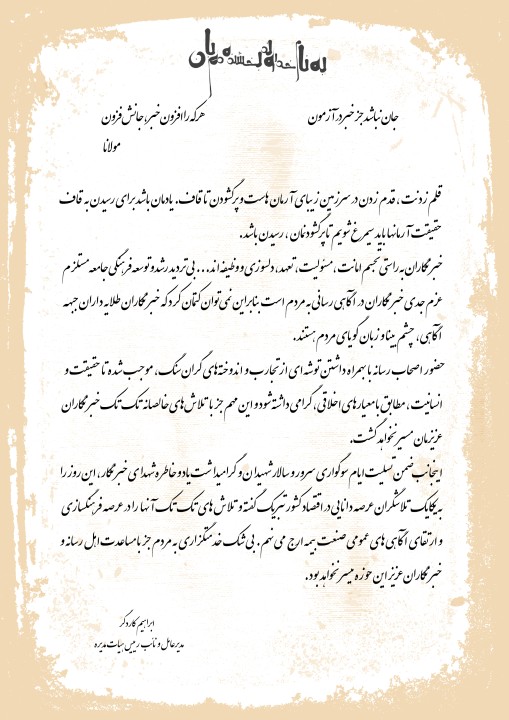 به نام خداوند بخشنده مهربان
جان نباشد جز خبر در آزمون
هرکه را افزون خبر، جانش فزون
مولانا
قلم زدنت، قدم زدن در سرزمین زیبای آرمان هاست و پر گشودن تا قاف. یادمان باشد برای رسیدن به قاف
حقیقت آرمانها باید سیمرغ شویم تا پر گشودنمان، رسیدن باشد.
خبرنگاران به راستی تجسم امانت، مسئولیت، تعهد، دلسوزی و وظیفه اند... بی تردید رشد و توسعه فرهنگی جامعه مستلزم
عزم جدی خبرنگاران در آگاهی رسانی به مردم است بنابراین نمی توان کتمان کرد که خبرنگاران طلایه داران جبهه
آگاهی، چشم بینا و زبان گویای مردم هستند.
حضور اصحاب رسانه با بهمراه داشتن توشه ای از تجارب و اندوخته های گران سنگ، موجب شده تا حقیقت و
انسانیت، مطابق با معیارهای اخلاقی، گرامی داشته شود و این مهم جز با تلاش های خالصانه تک تک خبرنگاران
عزیزمان میسر نخواهد گشت.
اینجانب ضمن تسلیت ایام سوگواری سرور و سالار شهیدان و گرامیداشت یاد و خاطره شهدای خبرنگار، این روز را
به یکایک تلاشگران عرصه دانایی در اقتصاد کشور تبریک گفته و تلاش های تک تک آنها را در عرصه فرهنگسازی
و ارتقای آگاهی های عمومی صنعت بیمه ارج می نهم. بی شک خدمتگزاری به مردم جز با مساعدت اهل رسانه و
خبرنگاران عزیز این حوزه میسر نخواهد بود.
ابراهیم کاردگر
مدیرعامل و نائب رییس هیات مدیره